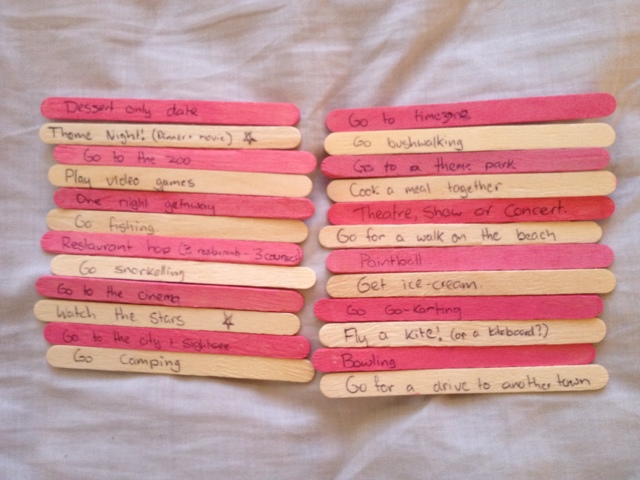 Dessert only date
Theme Night! (Dinner + movie) ☆
Go to the zoo
Play video games
One night getaway
Go fishing
Restaurant hop (3 restaurants - 3 courses)
Go snorkelling
Go to the cinema
Watch the Stars ☆
Go to the city & Sightsee
Go Camping
Go to timezone
Go bushwalking
Go to a theme park
Cook a meal together
Theatre, Show or Concert.
Go for a walk on the beach
Paintball
Get ice-cream.
Go Go-karting
Fly a kite! (or a kiteboard?)
Bowling
Go for a drive to another town